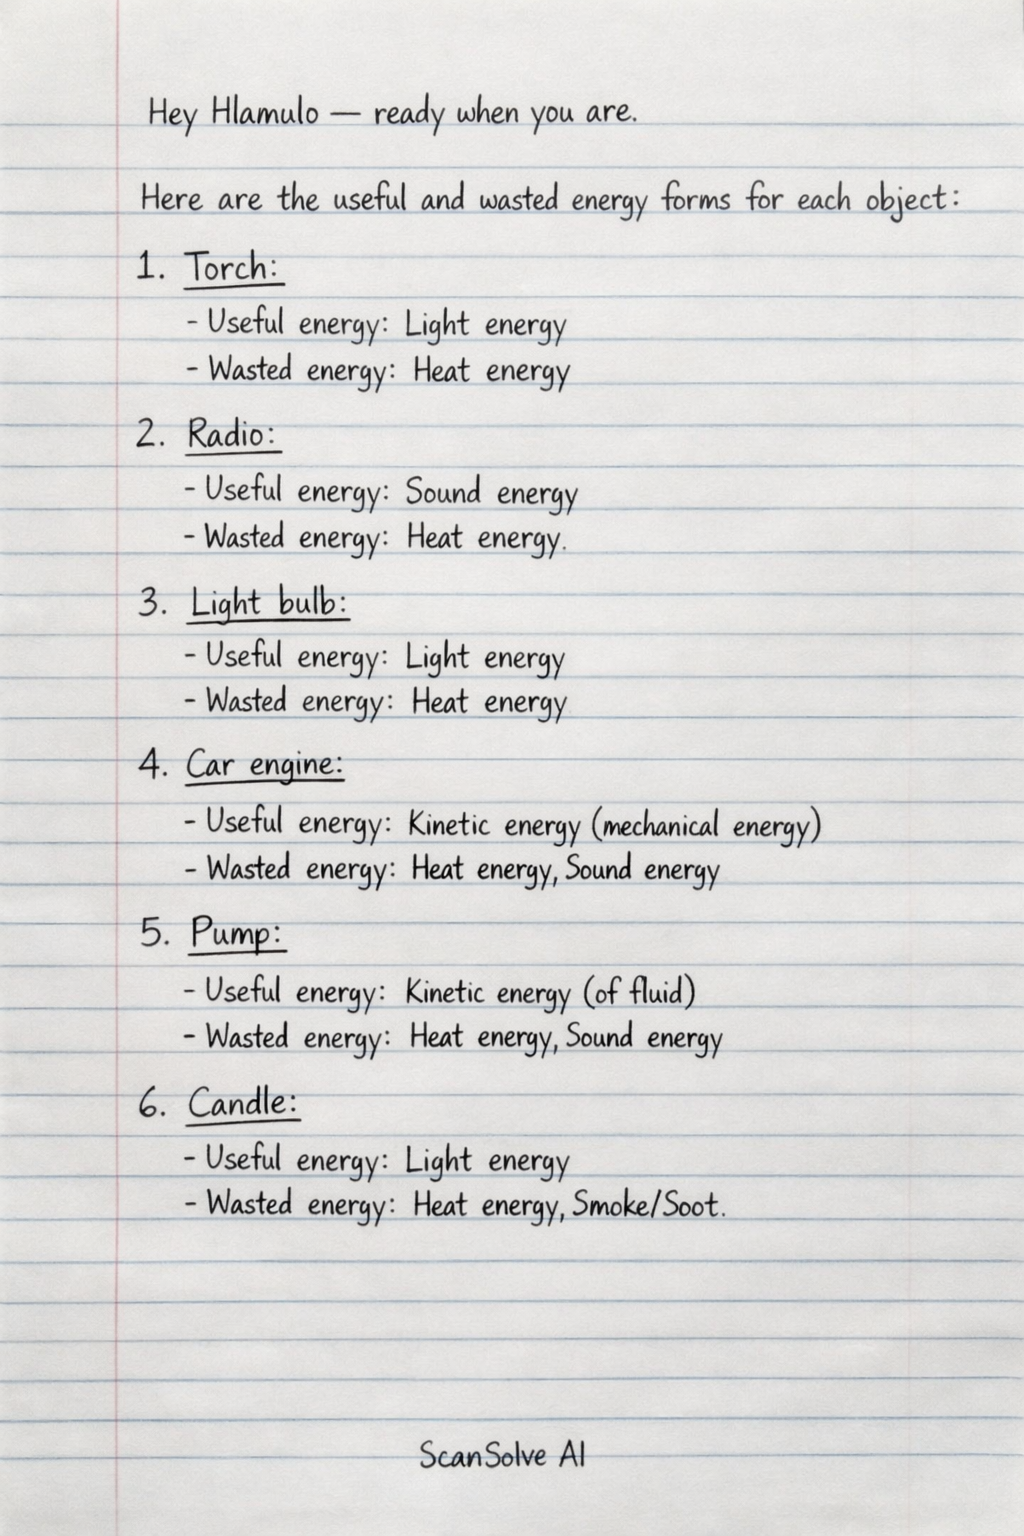 Hey Hlamulo — ready when you are.
Here are the useful and wasted energy forms for each object:
1. Torch:
- Useful energy: Light energy
- Wasted energy: Heat energy
2. Radio:
- Useful energy: Sound energy
- Wasted energy: Heat energy.
3. Light bulb:
- Useful energy: Light energy
- Wasted energy: Heat energy
4. Car engine:
- Useful energy: Kinetic energy (mechanical energy)
- Wasted energy: Heat energy, Sound energy
5. Pump:
- Useful energy: Kinetic energy (of fluid)
- Wasted energy: Heat energy, Sound energy
6. Candle:
- Useful energy: Light energy
- Wasted energy: Heat energy, Smoke/Soot.
ScanSolve AI